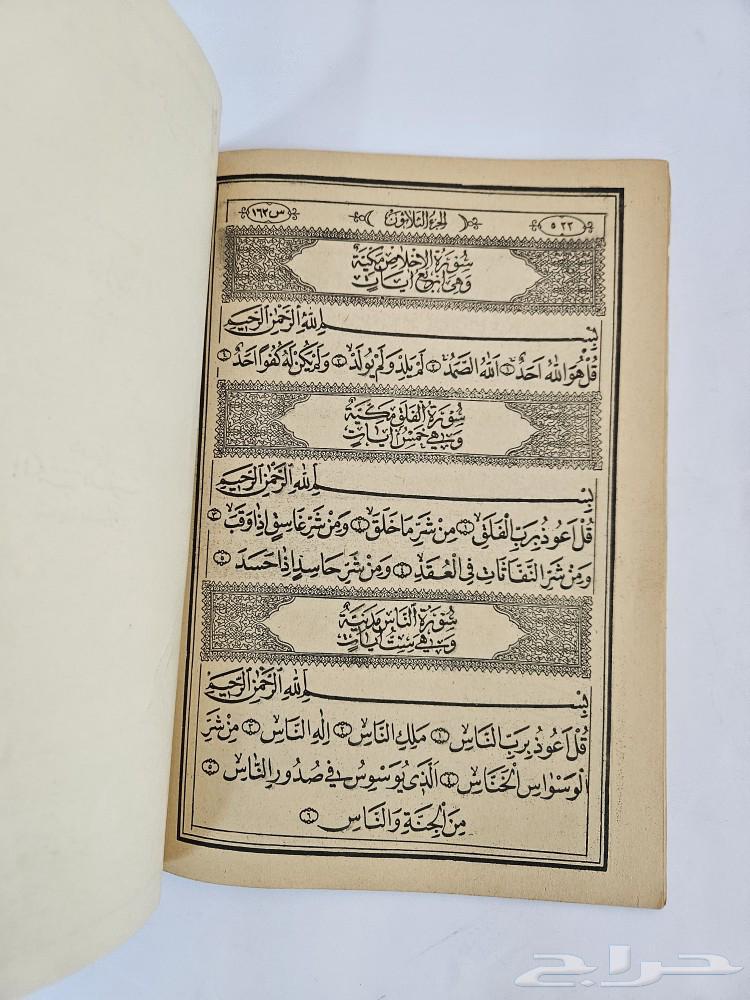 ٥٢٢ الجزء الثلاثون س ١٦٢
سُورَةُ الْاِخْلَاصِ مَكِّيَّةٌ
وَهِىَ اَرْبَعُ اٰيَاتٍ
بِسْمِ اللّٰهِ الرَّحْمٰنِ الرَّحِيمِ
قُلْ هُوَ اللّٰهُ اَحَدٌ ١ اَللّٰهُ الصَّمَدُ ٢ لَمْ يَلِدْ وَلَمْ يُولَدْ ٣ وَلَمْ يَكُنْ لَهُ كُفُوًا اَحَدٌ ٤
سُورَةُ الْفَلَقِ مَكِّيَّةٌ
وَهِىَ خَمْسُ اٰيَاتٍ
بِسْمِ اللّٰهِ الرَّحْمٰنِ الرَّحِيمِ
قُلْ اَعُوذُ بِرَبِّ الْفَلَقِ ١ مِنْ شَرِّ مَا خَلَقَ ٢ وَمِنْ شَرِّ غَاسِقٍ اِذَا وَقَبَ ٣
وَمِنْ شَرِّ النَّفَّاثَاتِ فِى الْعُقَدِ ٤ وَمِنْ شَرِّ حَاسِدٍ اِذَا حَسَدَ ٥
سُورَةُ النَّاسِ مَدَنِيَّةٌ
وَهِىَ سِتُّ اٰيَاتٍ
بِسْمِ اللّٰهِ الرَّحْمٰنِ الرَّحِيمِ
قُلْ اَعُوذُ بِرَبِّ النَّاسِ ١ مَلِكِ النَّاسِ ٢ اِلٰهِ النَّاسِ ٣ مِنْ شَرِّ
الْوَسْوَاسِ الْخَنَّاسِ ٤ اَلَّذِى يُوَسْوِسُ فِى صُدُورِ النَّاسِ ٥
مِنَ الْجِنَّةِ وَالنَّاسِ ٦
حراج